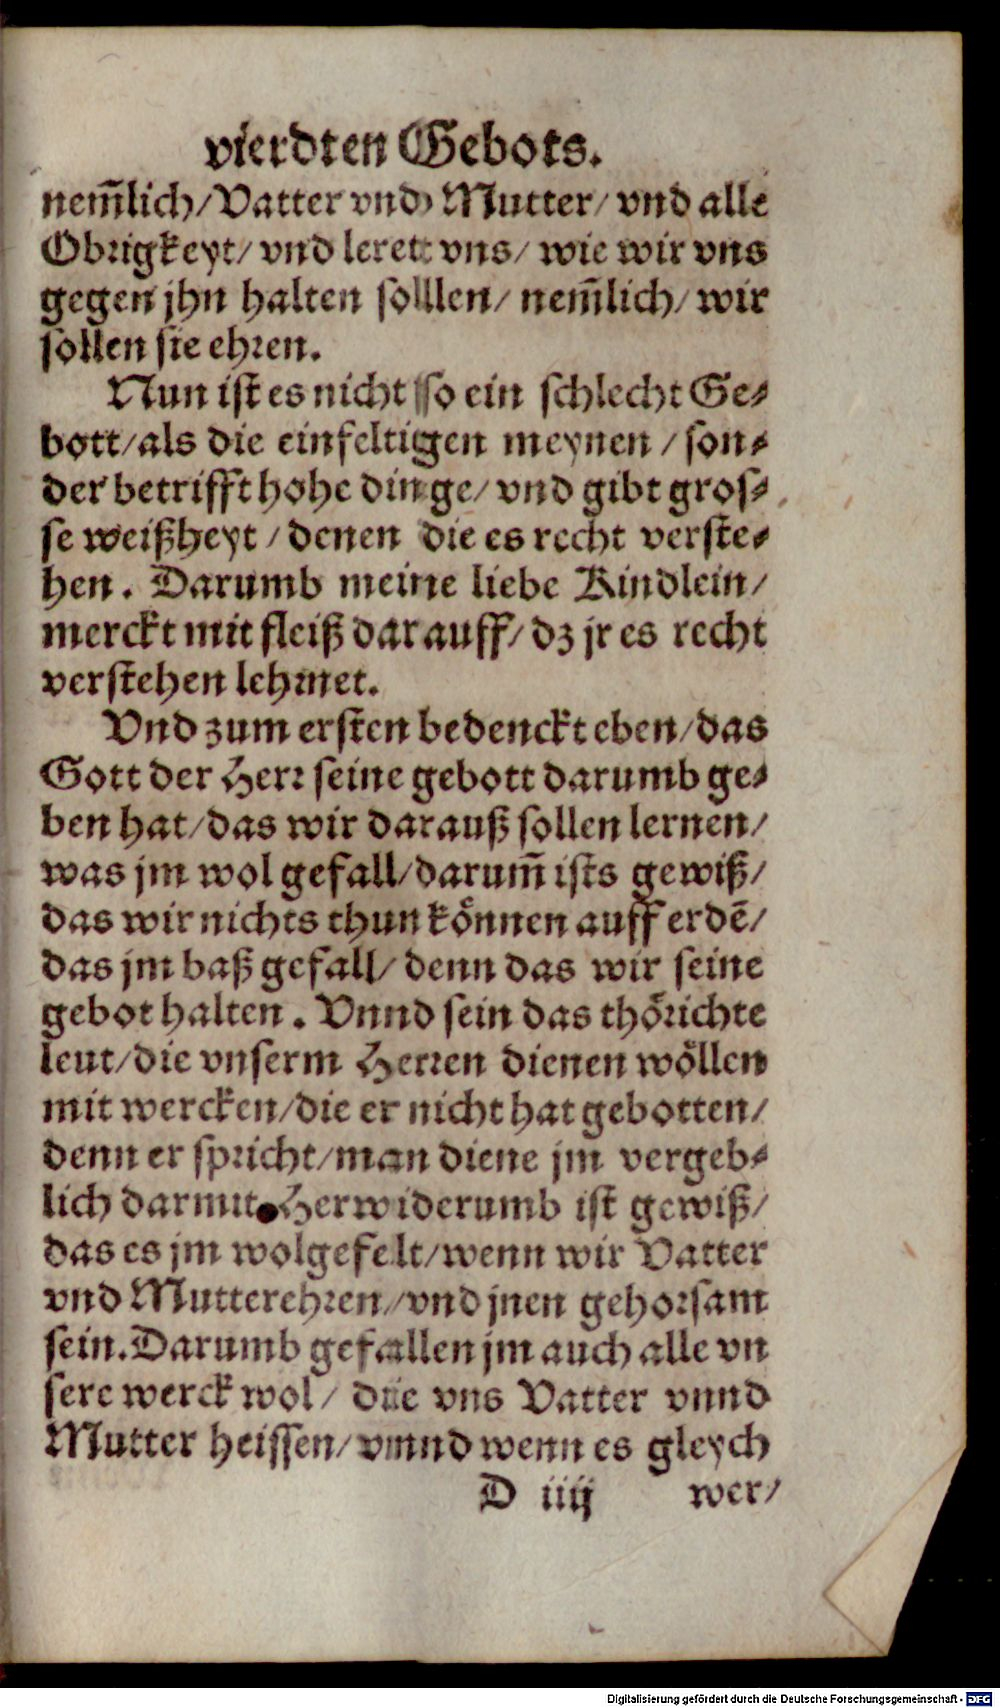 vierdten Gebots.
nem̃lich/ Vatter vnd Mutter/ vnd alle
Obrigkeyt/ vnd leret vns/ wie wir vns
gegen jhn halten solllen/ nem̃lich/ wir
sollen sie ehren.
Nun ist es nicht so ein schlecht Ge⸗
bott/als die einfeltigen meynen / son⸗
der betrifft hohe dinge/ vnd gibt gros⸗
se weißheyt / denen die es recht verste⸗
hen. Darumb meine liebe Kindlein/
merckt mit fleiß darauff/ dz jr es recht
verstehen lehrnet.
Vnd zum ersten bedenckt eben/das
Gott der Herr seine gebott darumb ge⸗
ben hat/das wir darauß sollen lernen/
was jm wol gefall/darum̃ ists gewiß/
das wir nichts thun können auff erdē/
das jm baß gefall/ denn das wir seine
gebot halten. Vnnd sein das thörichte
leut/die vnserm Herren dienen wöllen
mit wercken/die er nicht hat gebotten/
denn er spricht/man diene jm vergeb⸗
lich darmit. Herwiderumb ist gewiß/
das es jm wolgefelt/wenn wir Vatter
vnd Mutter ehren/vnd jnen gehorsam
sein. Darumb gefallen jm auch alle vn
sere werck wol/ die vns Vatter vnnd
Mutter heissen/ vnnd wenn es gleych
D iiij wer/
Digitalisierung gefördert durch die Deutsche Forschungsgemeinschaft - DFG